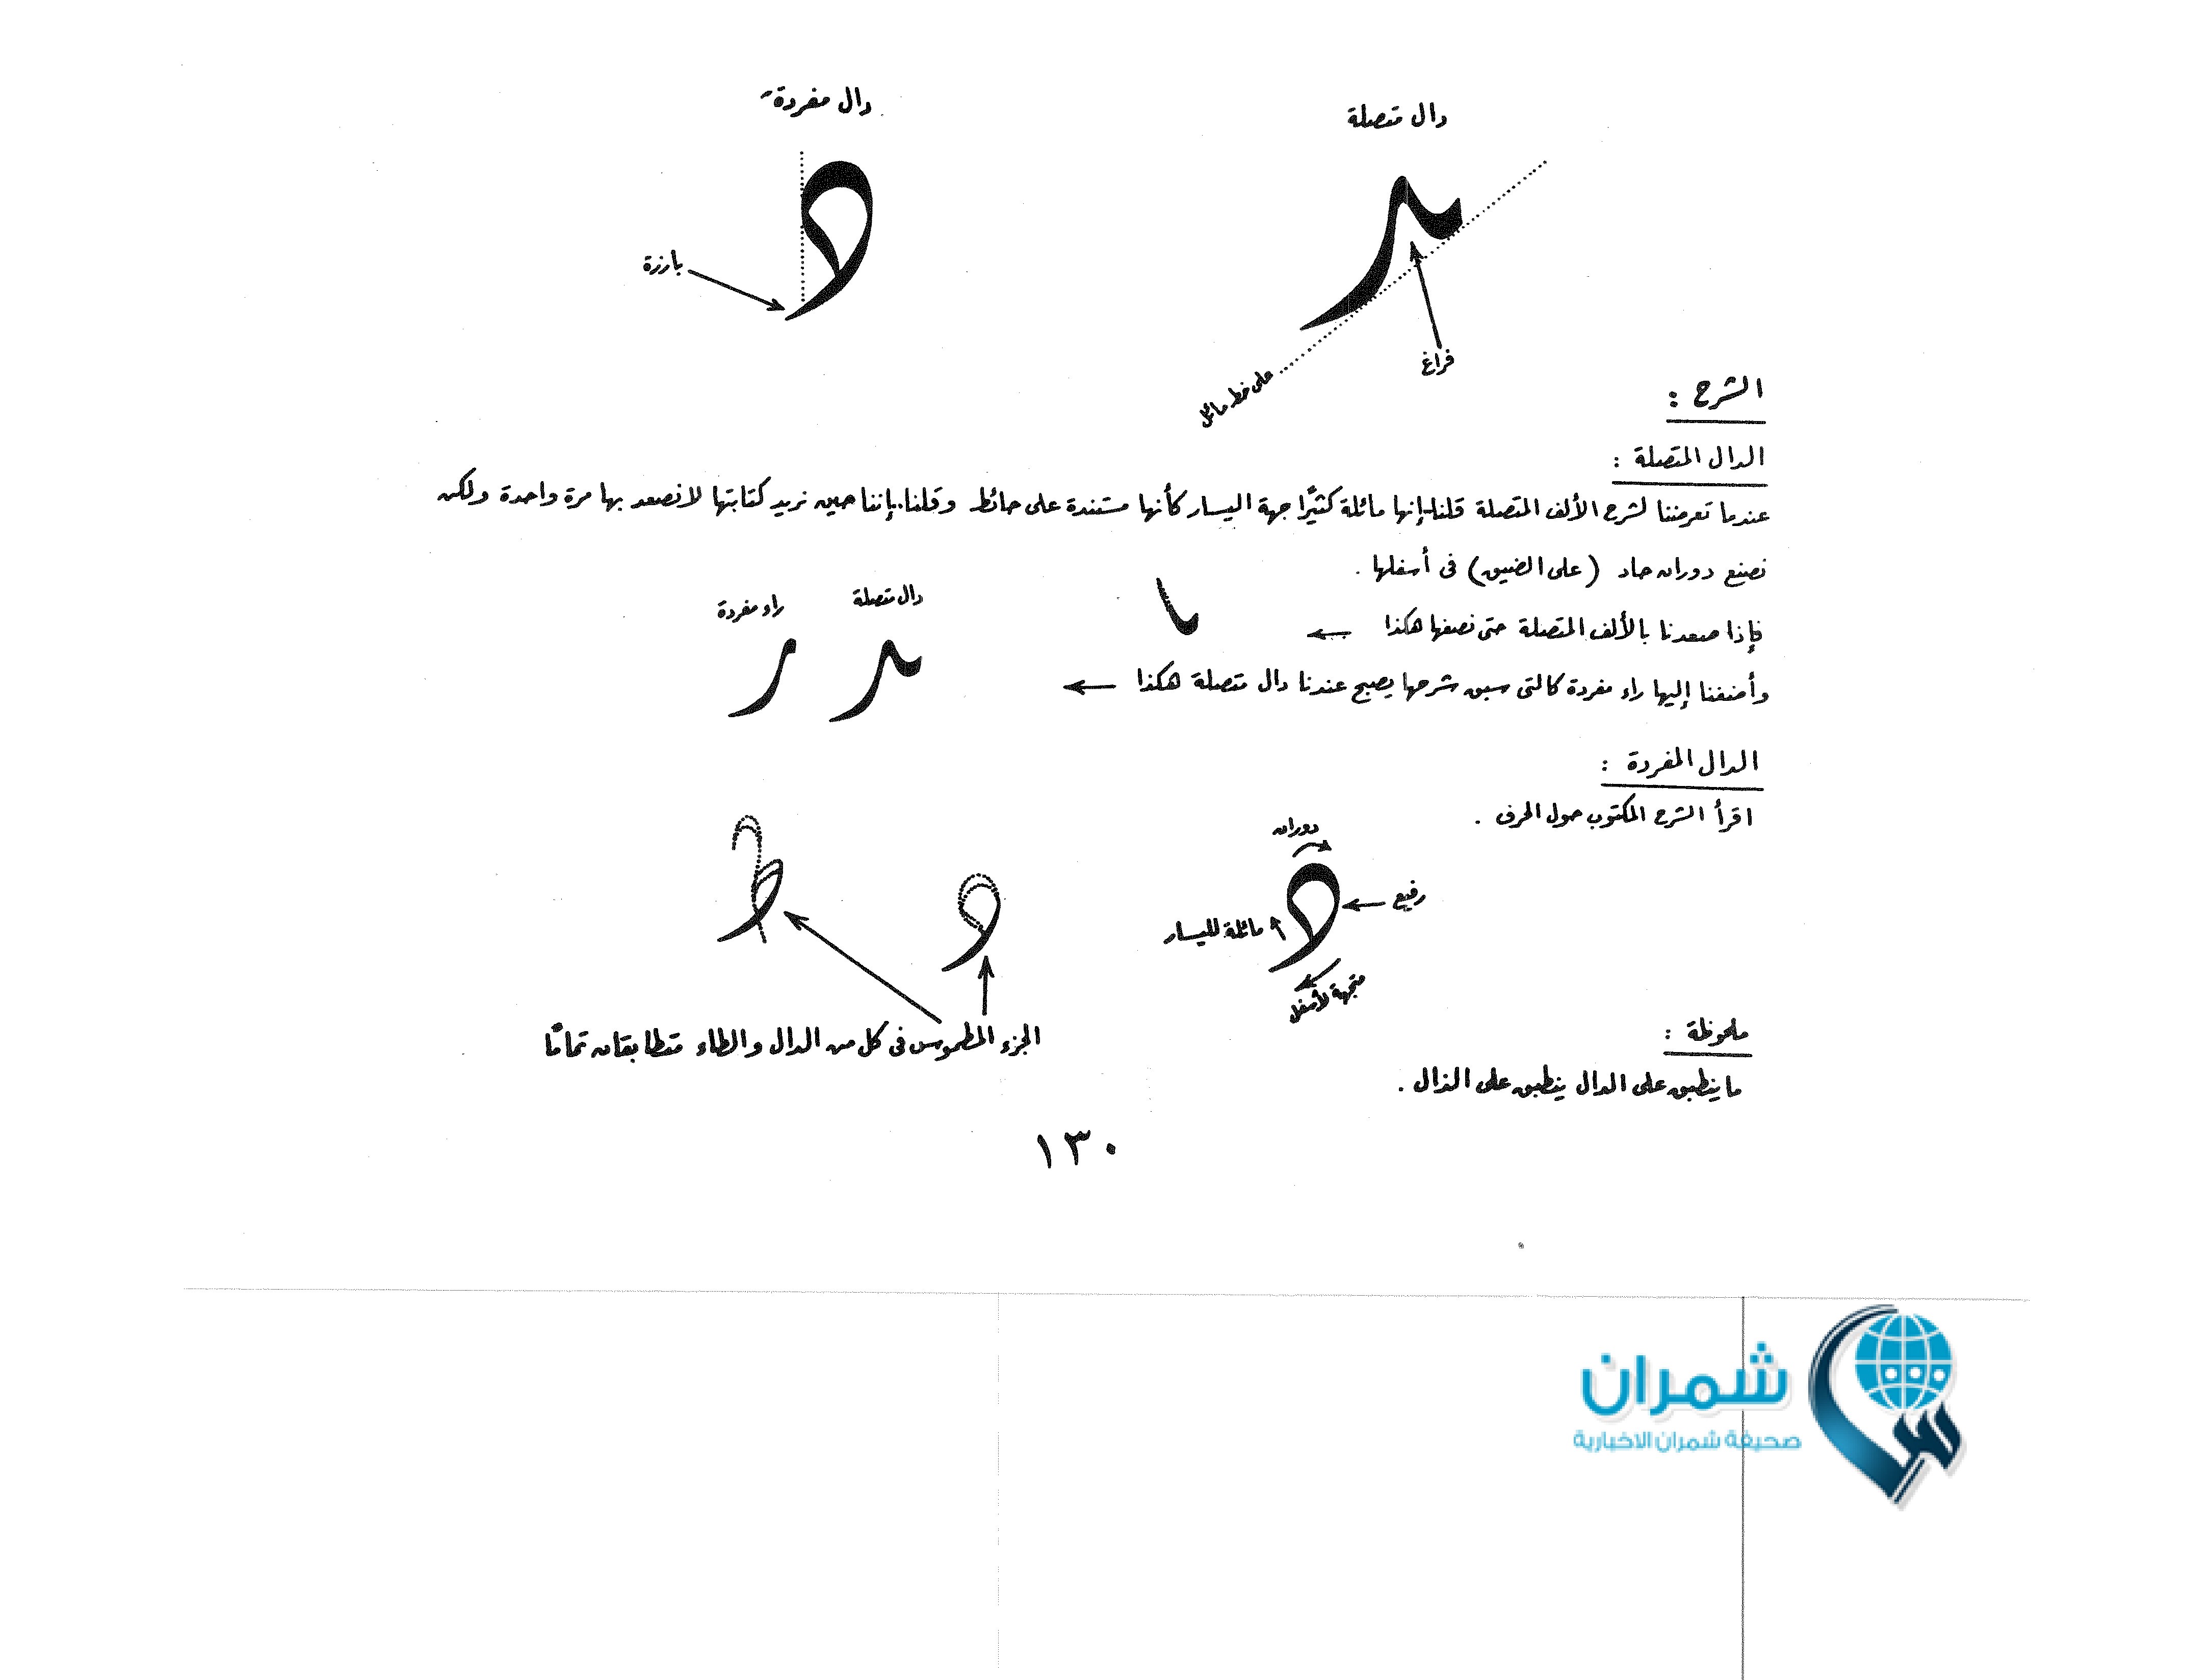 دال متصلة
دال مفردة
بارزة
فراغ
على خط مائل
الشرح :
الدال المتصلة :
عندما تعرضنا لشرح الألف المتصلة قلنا إنها مائلة كثيرًا جهة اليسار كأنها مستندة على حائط وقلنا بإننا حين نريد كتابتها لا نصعد بها مرة واحدة ولكن
نصنع دوران حاد (على الضيق) فى أسفلها .
فإذا صعدنا بالألف المتصلة حتى نصفها هكذا ←
دال متصلة
راء مفردة
وأضفنا إليها راء مفردة كالتى سبق شرحها يصبح عندنا دال متصلة هكذا ←
الدال المفردة :
اقرأ الشرح المكتوب حول الحرف .
دوران
رفيع
مائلة لليسار
متجهة لأسفل
الجزء المطموس فى كل من الدال والطاء متطابقان تمامًا
ملحوظة :
ما ينطبق على الدال ينطبق على الذال .
١٣٠
شمران
صحيفة شمران الاخبارية